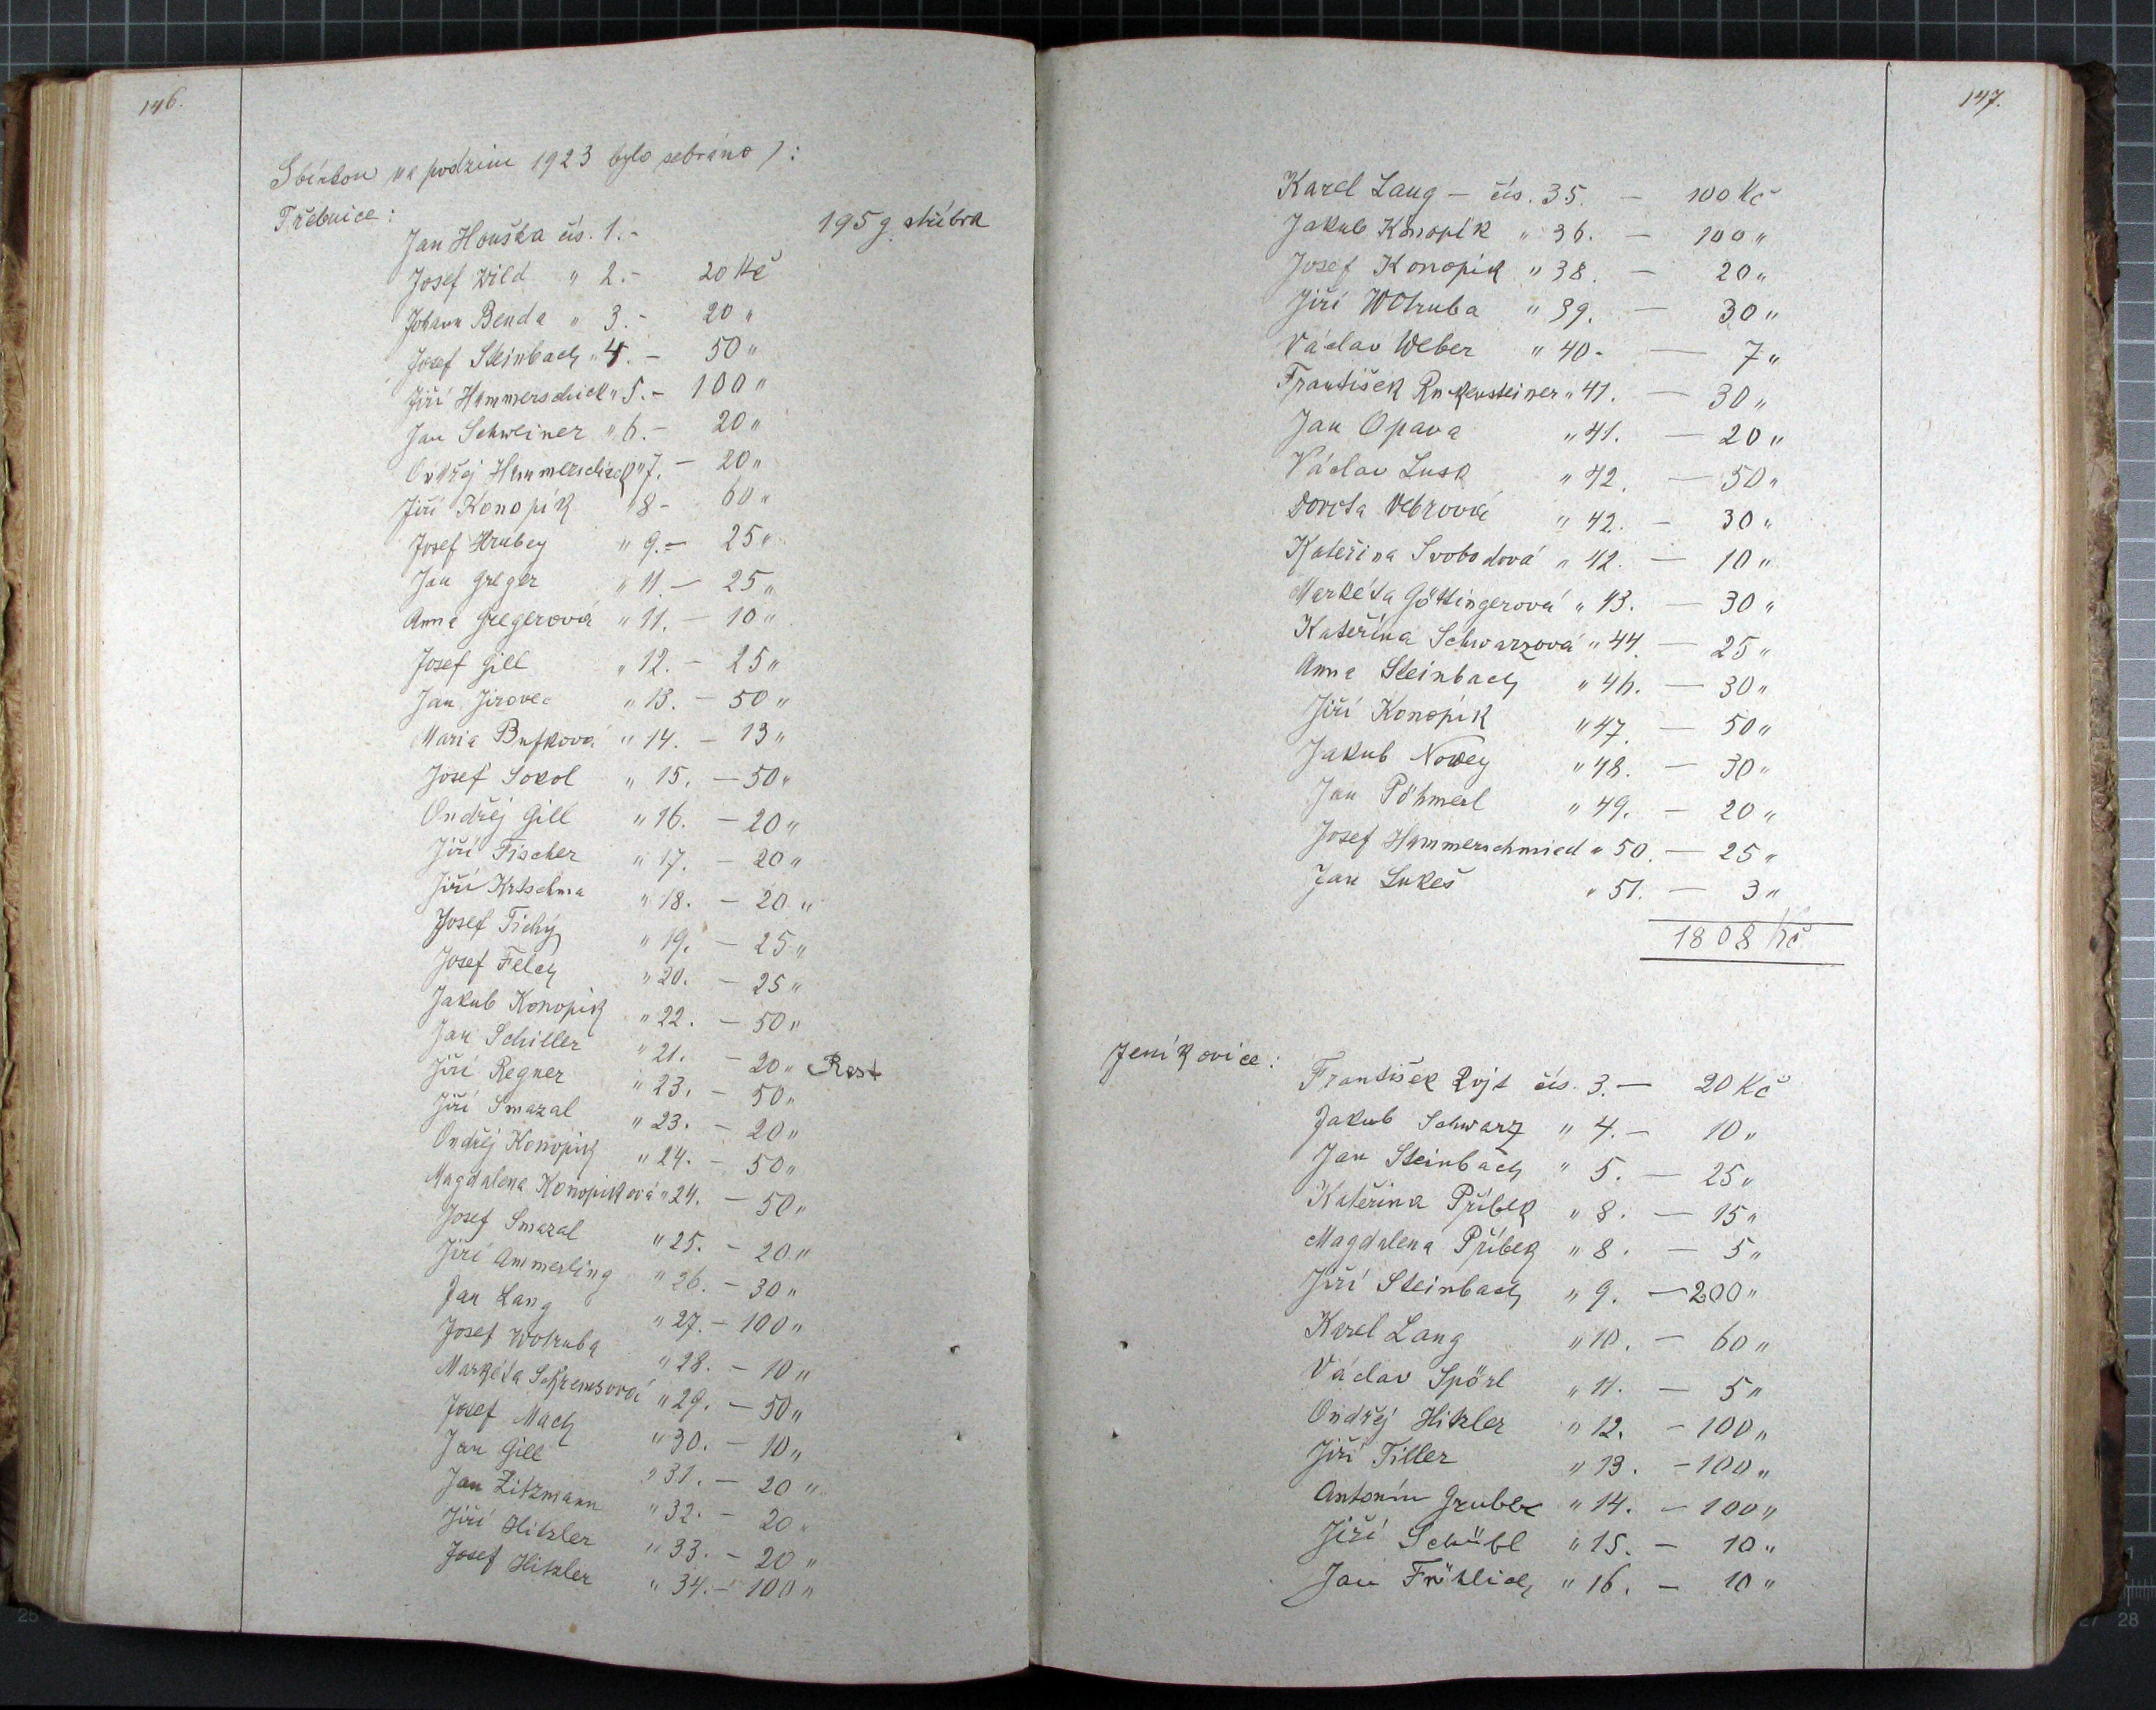 146.
Sbírkou na podzim 1923 bylo sebráno):
Třebnice:
Jan Houška čís. 1.- 195 g. stříbra
Josef Wild " 2.- 20 Kč
Johann Benda " 3.- 20 "
Josef Steinbach " 4.- 50 "
Jiří Hammerschick " 5.- 100 "
Jan Schweiner " 6.- 20 "
Ondřej Hammerschick " 7.- 20 "
Jiří Konopík " 8- 60 "
Josef Hrubey " 9.- 25 "
Jan Greger " 11.- 25 "
Anna Gregerová " 11.- 10 "
Josef Gill " 12.- 25 "
Jan Jirovec " 13.- 50 "
Maria Bufková " 14.- 13 "
Josef Sokol " 15.- 50 "
Ondřej Gill " 16.- 20 "
Jiří Fischer " 17.- 20 "
Jiří Krtschma " 18.- 20 "
Josef Tichý " 19.- 25 "
Josef Felch " 20.- 25 "
Jakub Konopik " 22.- 50 "
Jan Schiller " 21.- 20 " Rest
Jiří Regner " 23.- 50 "
Jiří Smazal " 23.- 20 "
Ondřej Konopik " 24.- 50 "
Magdalena Konopiková " 24.- 50 "
Josef Smazal " 25.- 20 "
Jiří Ammerling " 26.- 30 "
Jan Lang " 27.- 100 "
Josef Wotruba " 28.- 10 "
Markéta Schremsová " 29.- 50 "
Josef Mach " 30.- 10 "
Jan Gill " 31.- 20 "
Jan Zitzmann " 32.- 20 "
Jiří Hitzler " 33.- 20 "
Josef Hitzler " 34.- 100 "
147.
Karel Lang - čís. 35. - 100 Kč
Jakub Konopík " 36. - 100 "
Josef Konopik " 38. - 20 "
Jiří Wotruba " 39. - 30 "
Václav Weber " 40. - 7 "
František " 41. - 30 "
Jan Opava " 41. - 20 "
Václav Lusk " 42. - 50 "
Dorota Vebrová " 42. - 30 "
Kateřina Svobodová " 42. - 10 "
Markéta Göttingerová " 43. - 30 "
Kateřina Schwarzová " 44. - 25 "
Anna Steinbach " 46. - 30 "
Jiří Konopik " 47. - 50 "
Jakub Nowey " 48. - 30 "
Jan Pöhmerl " 49. - 20 "
Josef Hammerschmied " 50. - 25 "
Jan Lukeš " 51. - 3 "
1808 Kč
Jeníkovice:
František Vojt čís. 3.- 20 Kč
Jakub Schwarz " 4.- 10 "
Jan Steinbach " 5. - 25 "
Kateřina Příbek " 8. - 15 "
Magdalena Příbek " 8. - 5 "
Jiří Steinbach " 9. - 200 "
Karel Lang " 10. - 60 "
Václav Spörl " 11. - 5 "
Ondřej Hitzler " 12. - 100 "
Jiří Tiller " 13. - 100 "
Antonín Gruber " 14. - 100 "
Jiří Schübl " 15. - 10 "
Jan Fröhlich " 16. - 10 "
25
27 28